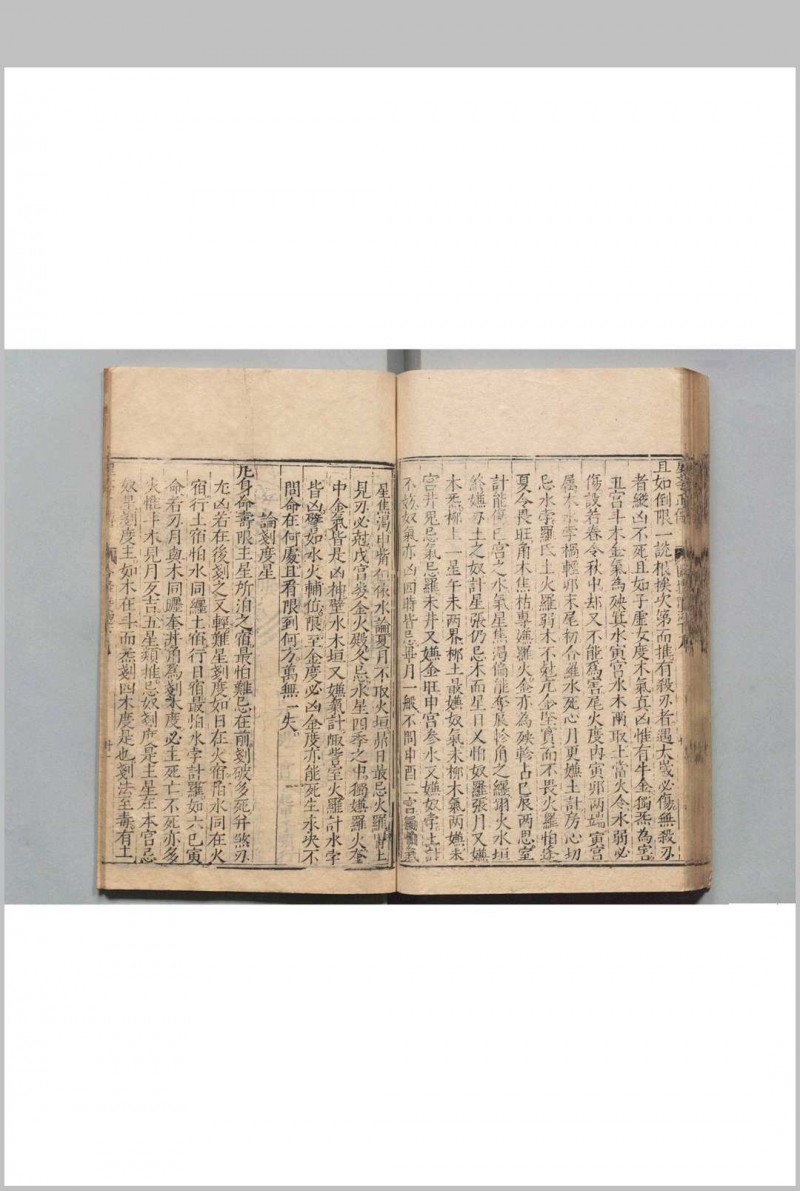 且如倒限一說根挨次第而推有殺刃者遇大歲必傷無殺刃
者縱凶不死且如子虛女度木氣真凶惟有牛金獨炁為害
丑宮斗木金氣為殃箕水寅宮水木兩取土當火令水弱必
傷設若春令秋中却又不能為害尾火度內寅卯兩端寅宮
屬木水孛禍輕卯末尾初介羅水死心月更嫌土計房心切
忌水孛羅氐土火羅弱木不尅亢金堅實而不畏火羅怕逢
夏令畏旺角木焦枯專嫌羅火金亦為殃軫占巳辰兩思室
計能傷巳宮之水氣星焦渴偏能奪展軫角之纏翊火水垣
終嫌刃土之奴計星張仍忌木而星日又怕奴羅張月又嫌
木炁柳上一星午未兩界柳土最嫌奴氣未柳木氣兩嫌未
宮井鬼忌氣忌羅未井又嫌金旺申宮參水又嫌奴孛土計
不妨奴氣亦凶四時皆忌畢月一般不問申酉二宮
星焦渴申觜 依水論夏月不取火垣昴日最忌火羅胃上
見刃必尅戌宮婁金火殿又忌水星四季之中獨嫌羅火奎
中金氣皆是凶神壁水木垣又嫌氣計娵訾室火羅計水孛
皆凶譬如水火輔值限至金度必凶金度亦能死生水央不
問命在何處且看限到何方萬無一失
論刻度星
凡身命壽限主星所泊之宿最怕難忌在前刻破多死并煞刃
尤凶若在後刻之又輕難星刻度如日在火宿陷水同在火
宿行土宿怕水同纏土宿行日宿最怕水孛計羅如六巳寅
命若刃月與木同躔奎井角為刻木度必主死亡不死亦多
火惟斗木見月反吉五星類推忌奴刻度是主星在本宮忌
奴單刻度主如木在斗而炁刻四木度是也刻法至毒有土